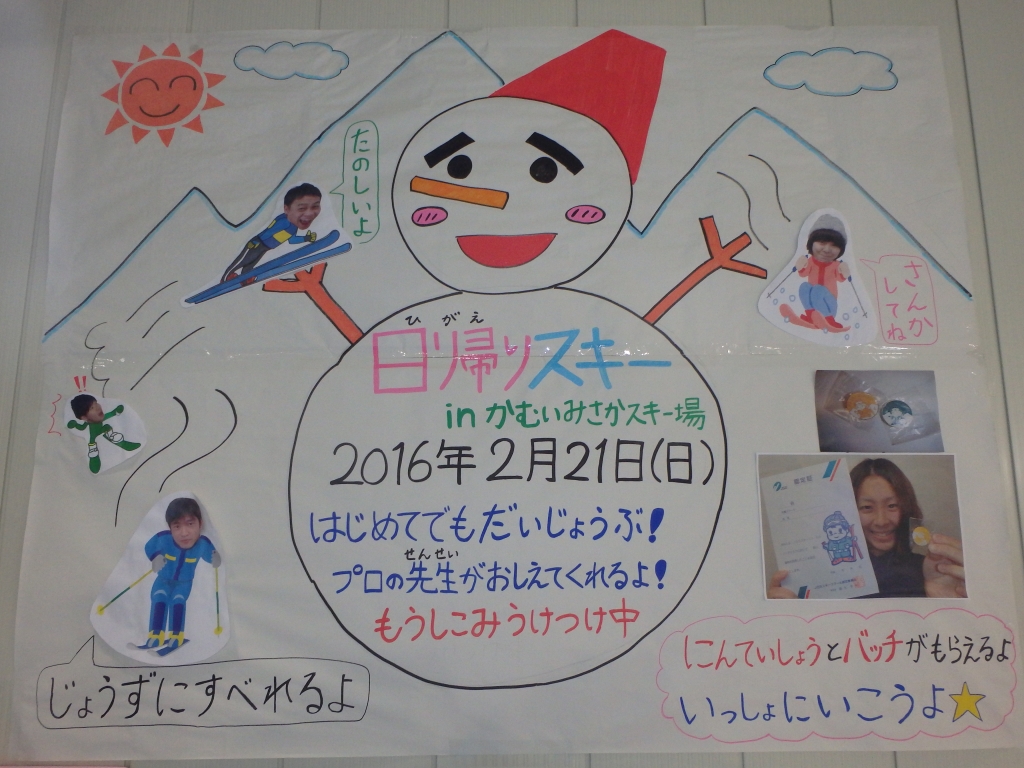 たのしいよ
さんか
してね
ひがえ
日帰りスキー
in かむいみさかスキー場
2016年 2月21日(日)
はじめてでもだいじょうぶ!
せんせい
プロの先生がおしえてくれるよ!
もうしこみうけつけ中
!!
じょうずにすべれるよ
にんていしょうとバッチがもらえるよ
いっしょにいこうよ